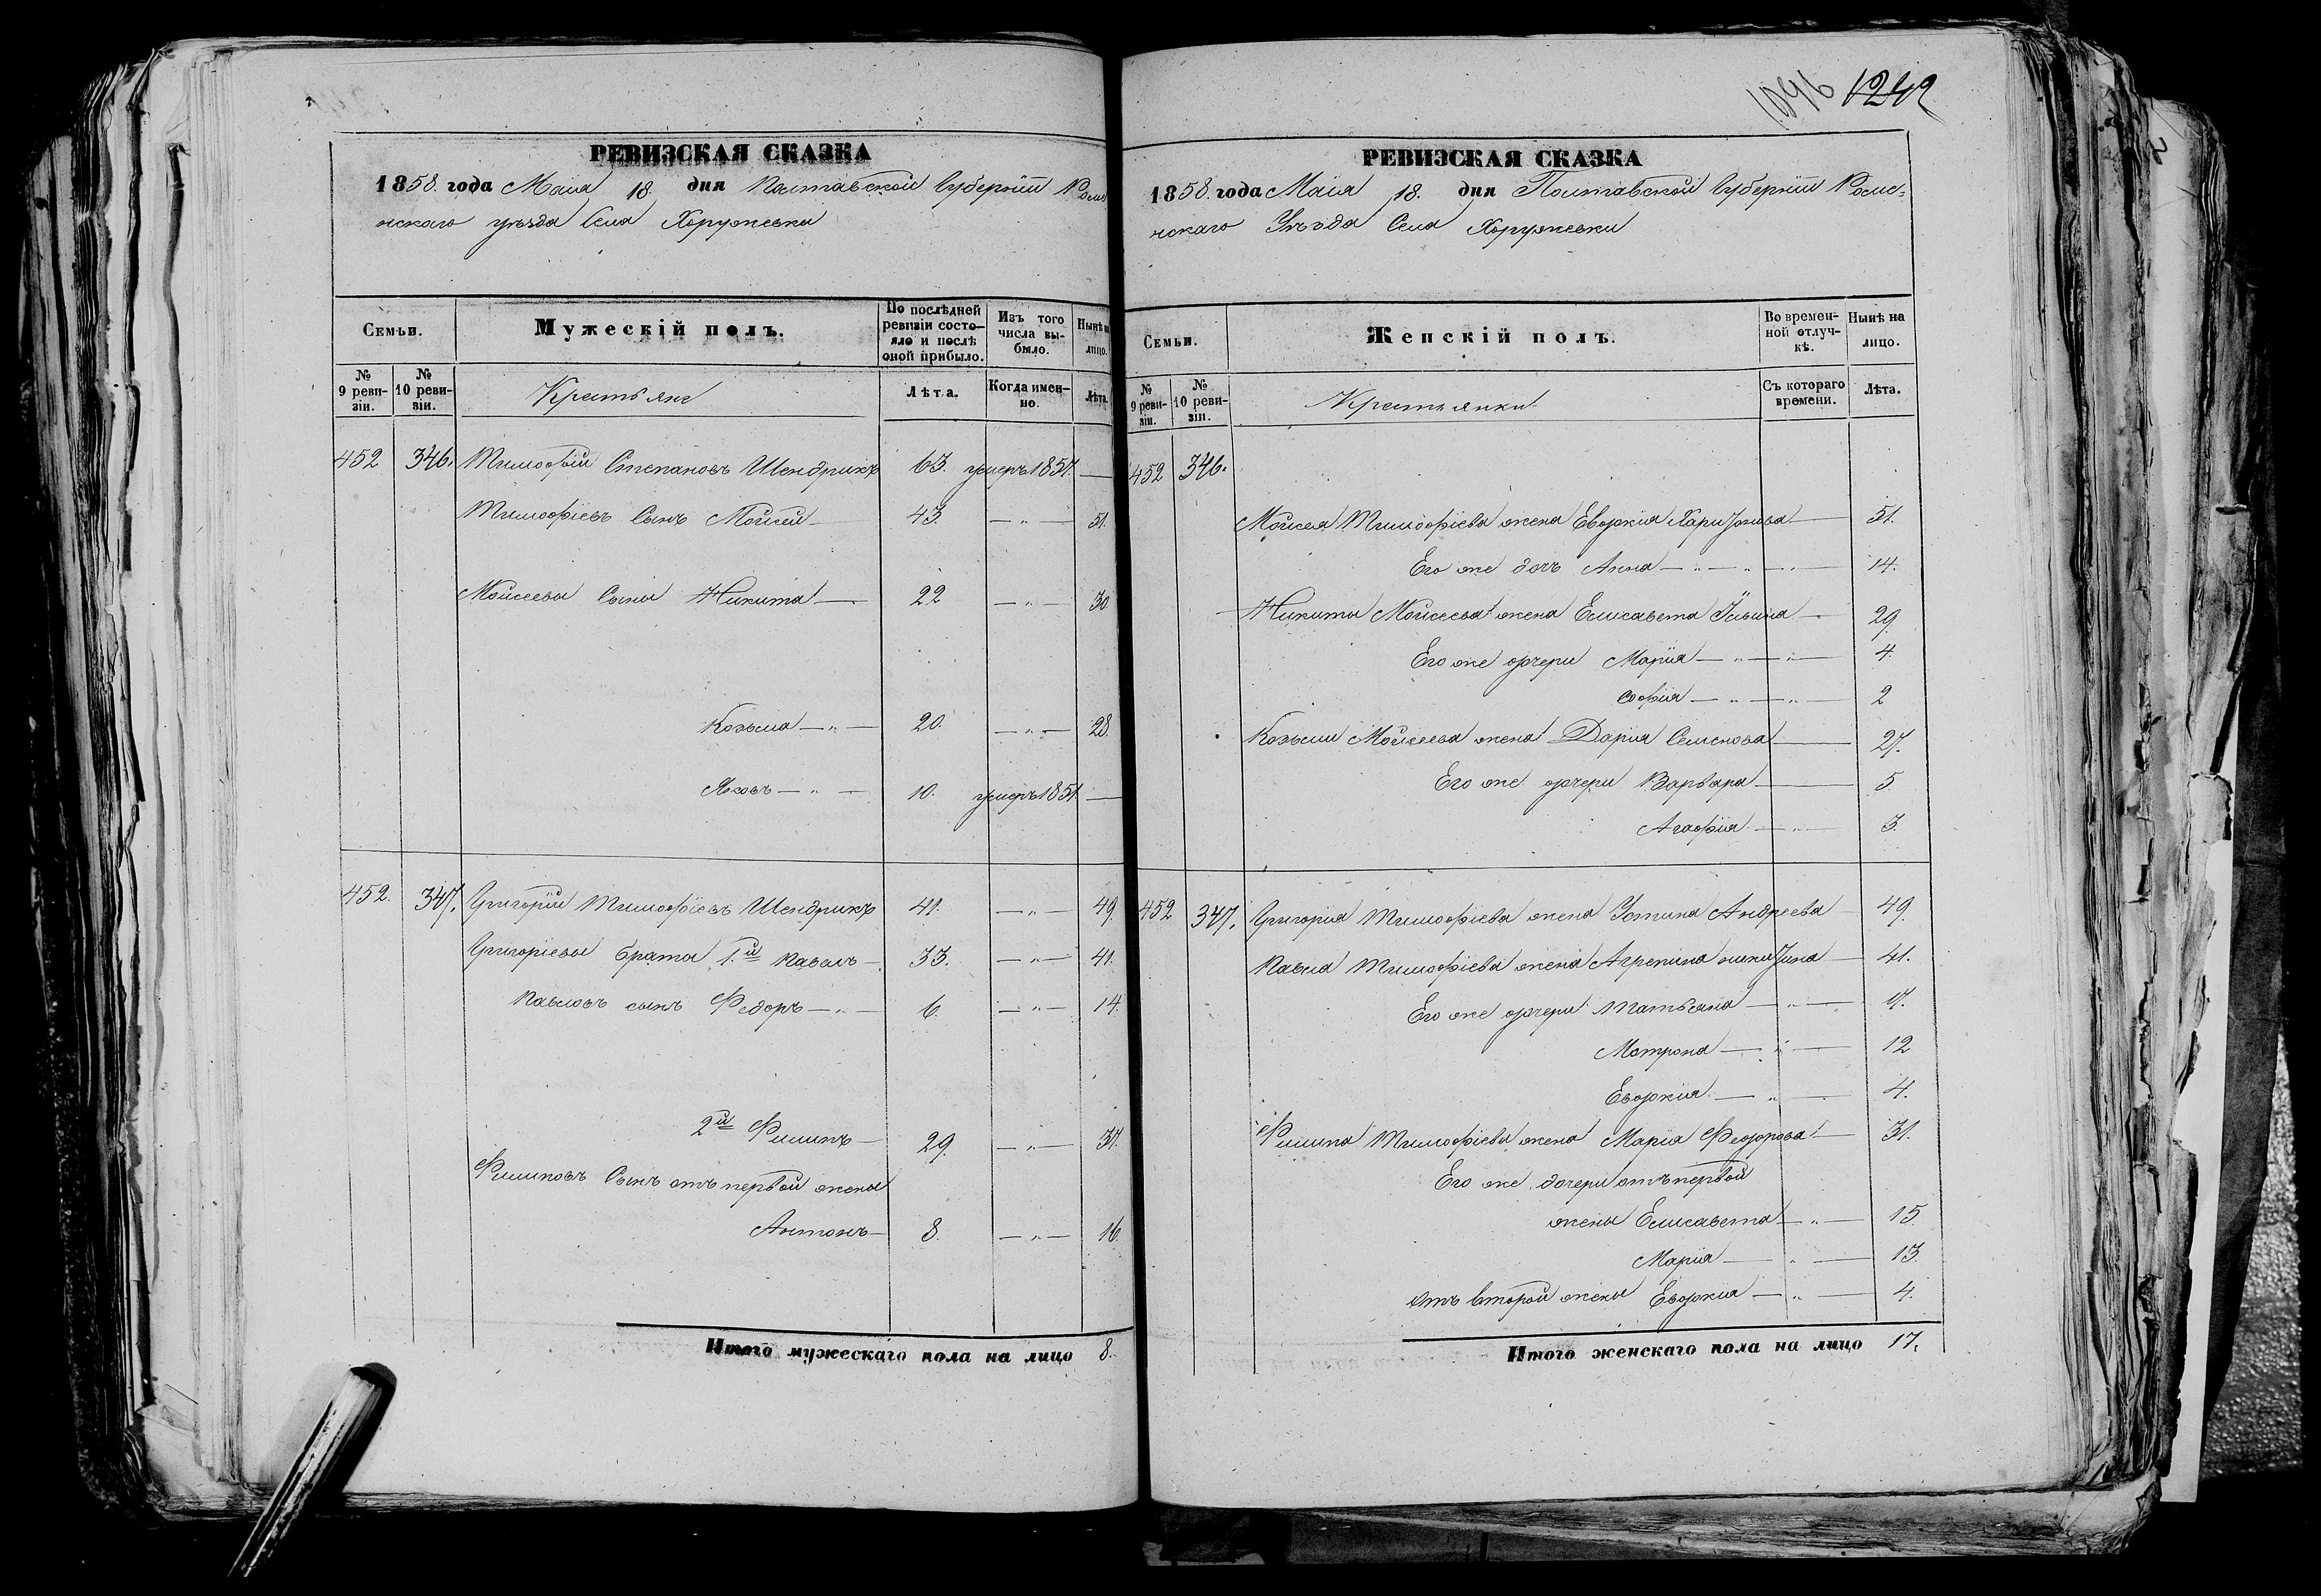 РЕВИЗСКАЯ СКАЗКА
1858. года Маія 18. дня Полтавской Губерніи Роме
нскаго уѣзда Села Хоружевки
Семьи.
Мужескій полъ.
По послѣдней ревизіи состояло и послѣ оной прибыло.
Изъ того числа выбыло.
Нынѣ на лицо.
№ 9 ревизіи.
№ 10 ревизіи.
Крестьяне
Лѣта.
Когда именно.
Лѣта
452 346. Тимофій Степановъ Шендрикъ 63. умеръ 1857. —
Тимофіевъ Сынъ Мойсей — 43 — „ — 51.
Мойсеевы Сыны Никита — 22 — „ — 30.
Козьма — „ — 20. — „ — 28.
Яковъ — „ — 10. умеръ 1851 —
452. 347. Григорій Тимофіевъ Шендрикъ 41. — „ — 49.
Григоріевы брата 1й Павелъ — 33. — „ — 41.
Павловъ сынъ Федоръ — „ — 6. — „ — 14.
2й Филипъ — 29. — „ — 37.
Филиповъ Сынъ отъ первой жены
Антонъ — 8. — „ — 16.
Итого мужескаго пола на лицо 8.
1096 1242
РЕВИЗСКАЯ СКАЗКА
1858. года Маія 18. дня Полтавской Губерніи Роме-
нскаго Уѣзда Села Хоружевки
Семьи.
Женскій полъ.
Во временной отлучкѣ.
Нынѣ на лицо.
№ 9 ревизіи.
№ 10 ревизіи.
Крестьянки
Съ котораго времени.
Лѣта.
452 346.
Мойсея Тимофіева жена Евдокія Харитонова — 51.
Его же дочь Анна — „ — „ — 14.
Никиты Мойсеева жена Елисавета Ильина — 29.
Его же дочери Марія — „ — „ — 4.
Софія — „ — „ — 2
Козьмы Мойсеева жена Дарія Семенова — 27.
Его же дочери Варвара — 5
Агафія — „ — 3.
452 347. Григорія Тимофіева жена Устина Андреева — 49.
Павла Тимофіева жена Агрепина Никитина — 41.
Его же дочери Татьяна — „ — 17.
Мотрона — „ — 12
Евдокія — „ — 4.
Филипа Тимофіева жена Марія Феодорова — 31.
Его же дочери отъ первой
жены Елисавета — „ — 15.
Марія — „ — 13.
отъ второй жены Евдокія — „ — 4.
Итого женскаго пола на лицо 17.